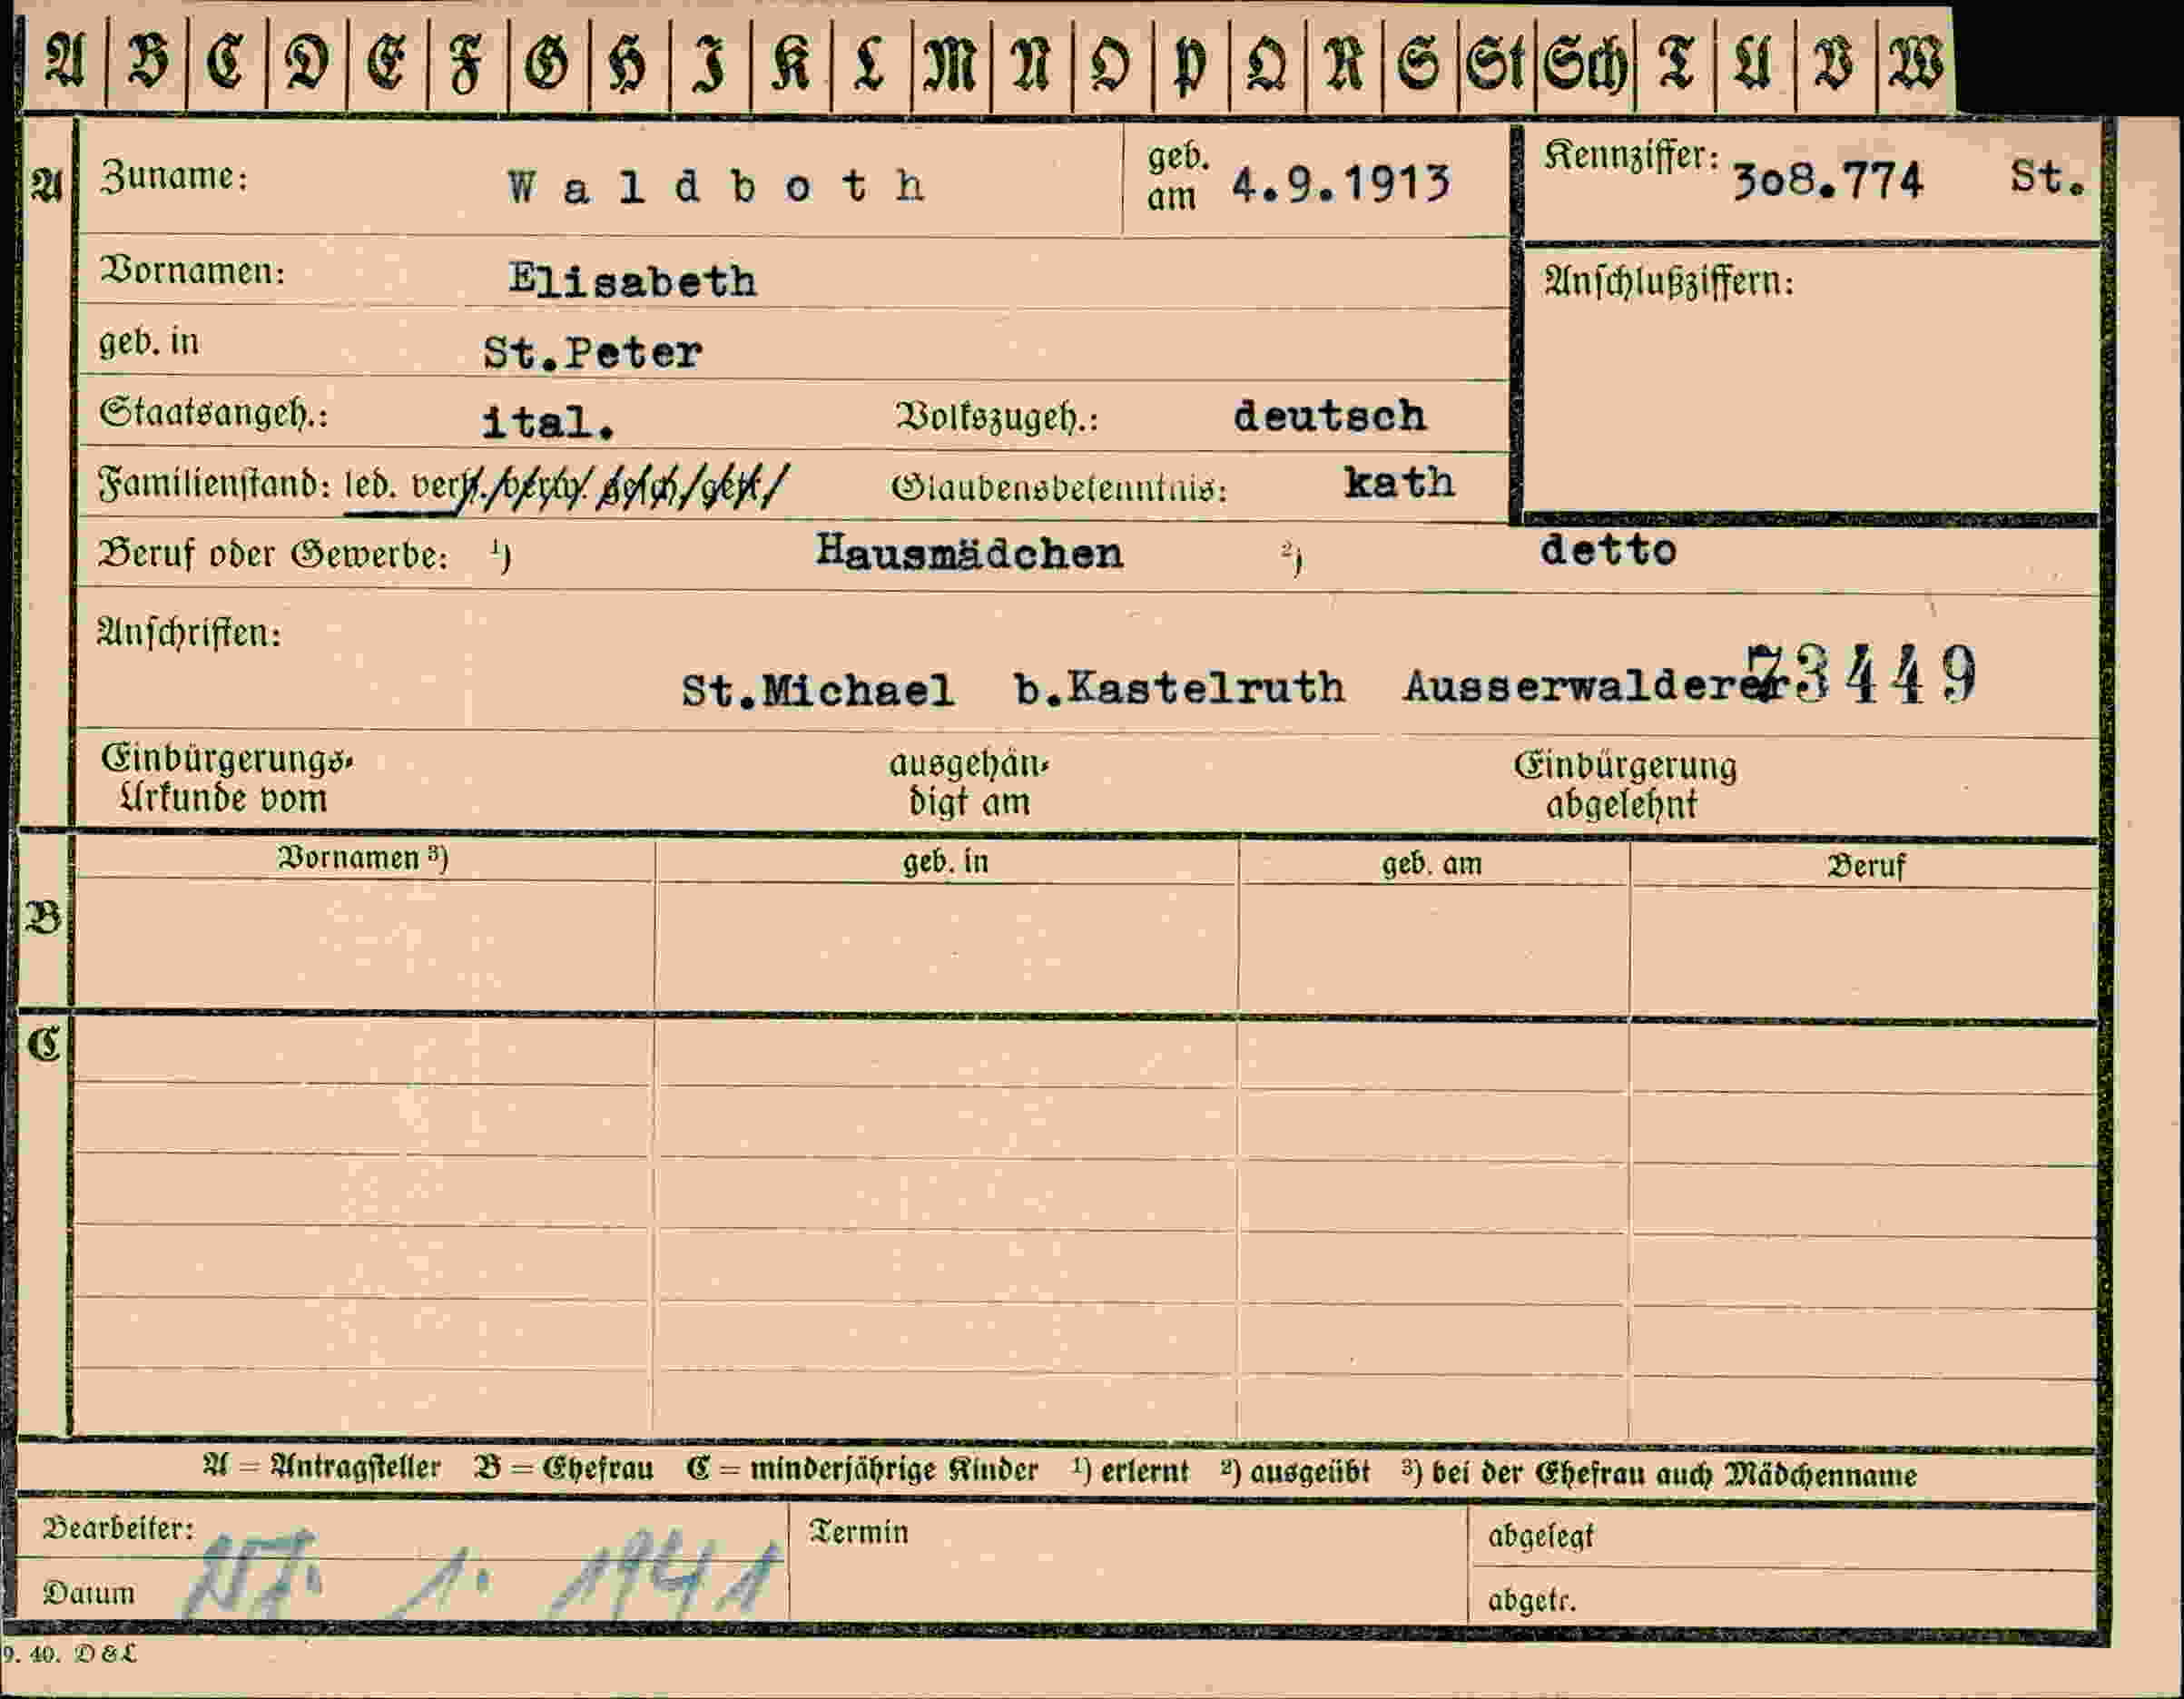 A B C D E F G H I K L M N O P Q R S St Sch T U V W
A Zuname: Waldboth geb. am 4.9.1913 Kennziffer: 308.774 St.
Vornamen: Elisabeth Anschlußziffern:
geb. in St.Peter
Staatsangeh.: ital. Volkszugeh.: deutsch
Familienstand: led. verh. verw. gesch. getr. Glaubensbekenntnis: kath
Beruf oder Gewerbe: ¹) Hausmädchen ²) detto
Anschriften:
St.Michael b.Kastelruth Ausserwalderer 73449
Einbürgerungs- ausgehän- Einbürgerung
Urkunde vom digt am abgelehnt
Vornamen ³) geb. in geb. am Beruf
B
C
A = Antragsteller B = Ehefrau C = minderjährige Kinder ¹) erlernt ²) ausgeübt ³) bei der Ehefrau auch Mädchenname
Bearbeiter: Termin abgelegt
Datum 1. 1941 abgetr.
9. 40. D & L